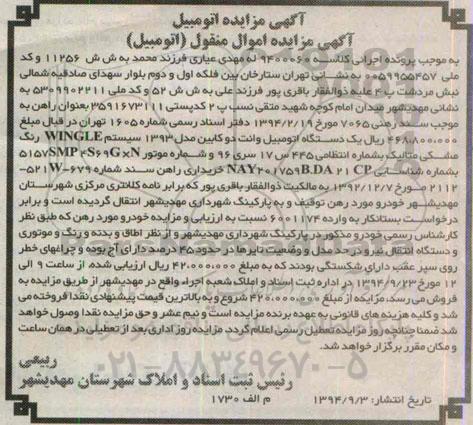 آگهی مزایده اتومبیل
آگهی مزایده اموال منقول (اتومبیل)
به موجب پرونده اجرائی کلاسه ۹۴۰۰۰۶۰ له مهدی عیاری فرزند محمد به ش ش ۱۱۲۵۶ و کد
ملی ۰۰۵۹۹۵۵۴۵۷ به نشانی تهران ستارخان بین فلکه اول و دوم بلوار سهدای صادقیه شمالی
نبش مردشت پ ۴ علیه ذوالفقار باقری پور فرزند علی به ش ش ۵۲ و کد ملی ۵۳۰۹۹۰۲۲۱۱ به
نشانی مهدیشهر میدان امام کوچه شهید متقی نسب پ ۲ کدپستی ۳۵۹۱۶۷۳۱۱۱ بعنوان راهن به
موجب سند رهنی ۷۰۶۵ مورخ ۱۳۹۴/۲/۱۹ دفتر اسناد رسمی شماره ۱۶۰۵ تهران در قبال مبلغ
۴۶۸،۸۰۰،۰۰۰ ریال یک دستگاه اتومبیل وانت دو کابین مدل ۱۳۹۳ سیستم WINGLE رنگ
مشکی متالیک بشماره انتظامی ۴۴۵ س ۱۷ سری ۹۶ و شماره موتور ۵۱۵۷SMP۴S۶۹GxN
بشماره شناسایی NAY۲۰۱۷۵۹B.DA۲۱CP خریداری راهن سند شماره ۶۷۹-W۵۲۱-
۲۱۱۲ مورخ ۱۳۹۲/۱۲/۷ به مالکیت ذوالفقار باقری پور که برابر نامه کلانتری مرکزی شهرستان
مهدیشهر خودرو مورد رهن توقیف و به پارکینگ شهرداری مهدیشهر انتقال گردیده است و برابر
درخواست بستانکار به وارده ۶۰۰۱۱۷۴ نسبت به ارزیابی و مزایده خودرو مورد رهن که طبق نظر
کارشناس رسمی خودرو مذکور در پارکینگ شهرداری مهدیشهر و از نظر اطاق و بدنه و رنگ و موتوری
و دستگاه انتقال نیرو در حد مدل و وضعیت تایرها در حدود ۴۵ درصد دارای آج بوده و چراغهای خطر
روی سپر عقب دارای شکستگی بودند که به مبلغ ۴۲۰،۰۰۰،۰۰۰ ریال ارزیابی شده. از ساعت ۹ الی
۱۲ مورخ ۱۳۹۴/۹/۲۳ در اداره ثبت اسناد و املاک شعبه اجراء واقع در مهدیشهر از طریق مزایده به
فروش می رسد، مزایده از مبلغ ۴۲۰،۰۰۰،۰۰۰ شروع و به بالاترین قیمت پیشنهادی نقدا فروخته می
شد و کلیه هزینه های قانونی به عهده برنده مزایده است و نیم عشر و حق مزایده نقدا وصول خواهد
شد ضمنا چنانچه روز مزایده تعطیل رسمی اعلام گردد. مزایده روز اداری بعد از تعطیلی در همان ساعت
و مکان مقرر برگزار خواهد شد.
ربیعی
رئیس ثبت اسناد و املاک شهرستان مهدیشهر
تاریخ انتشار: ۱۳۹۴/۹/۳ م الف ۱۷۳۰
۰۲۱-۸۸۳۴۹۶۷۰-۵